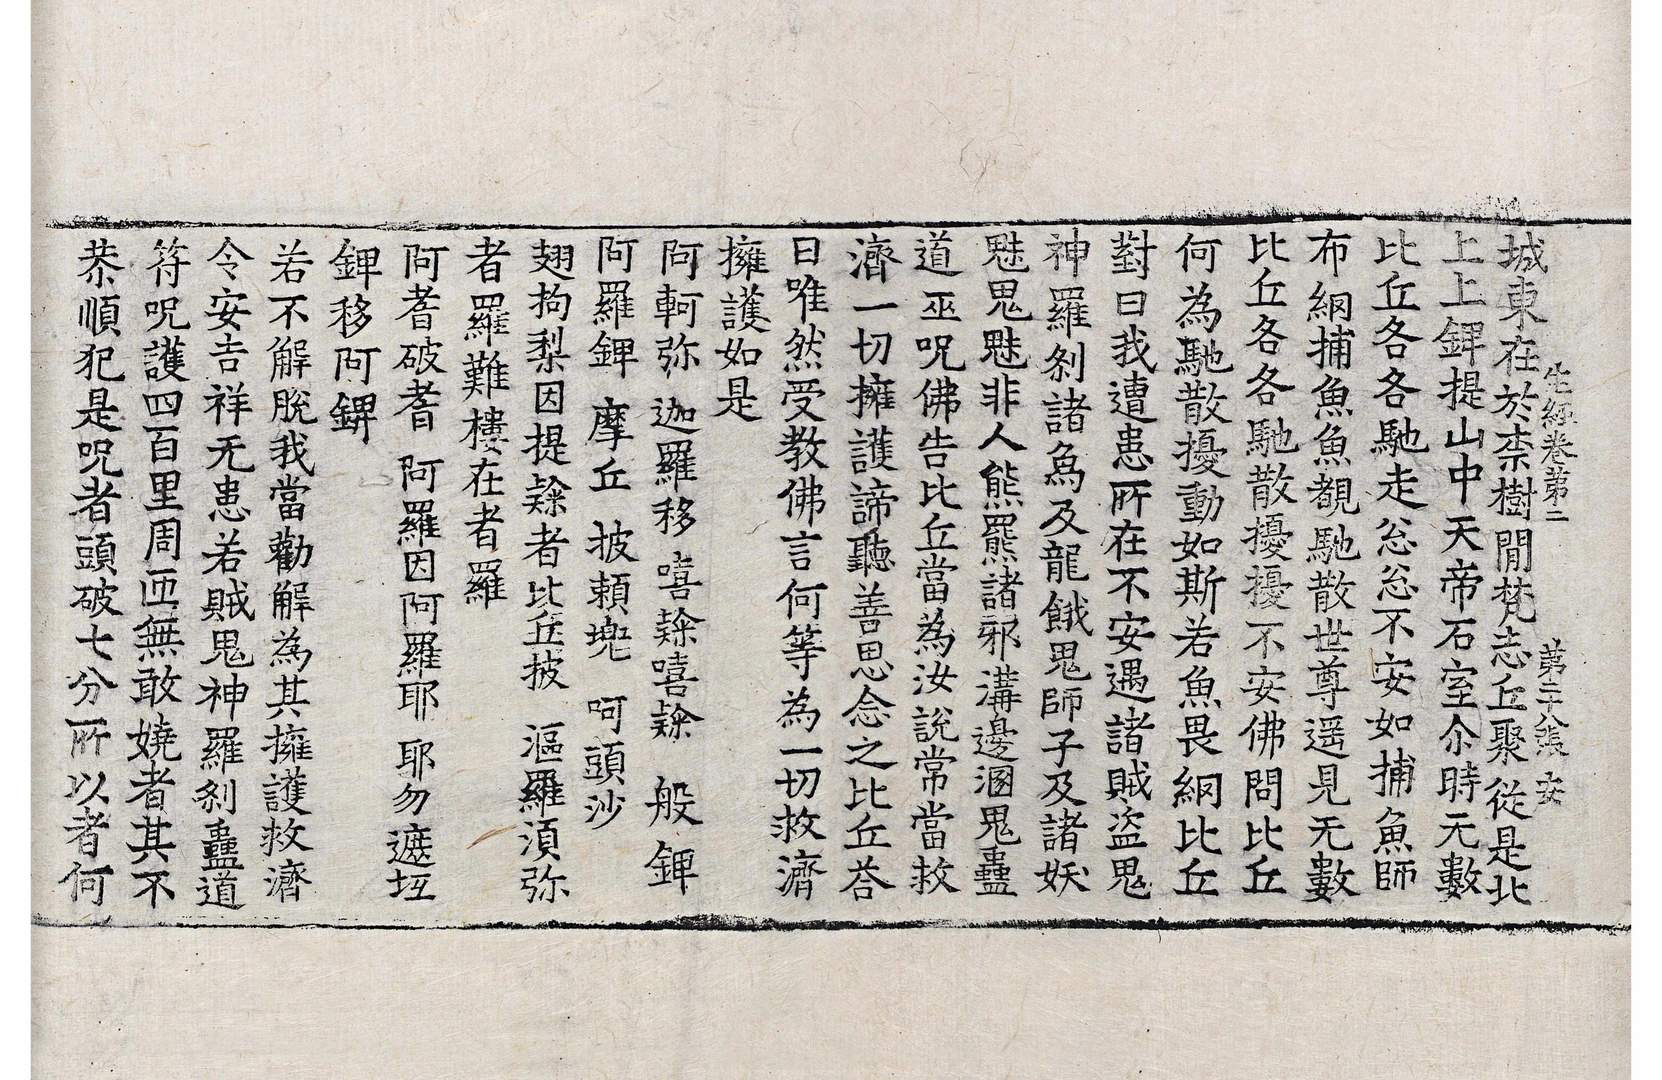 生經卷第二　第二十八張　安
城東在於柰樹閒梵志丘聚從是北
上上錍提山中天帝石室尒時无數
比丘各各馳走忩忩不安如捕魚師
布網捕魚魚覩馳散世尊遥見无數
比丘各各馳散擾擾不安佛問比丘
何為馳散擾動如斯若魚畏網比丘
對曰我遭患所在不安遇諸賊盜鬼
神羅刹諸為及龍餓鬼師子及諸妖
魅鬼魅非人熊羆諸邪溝邊溷鬼蠱
道巫呪佛告比丘當為汝說常當救
濟一切擁護諦聽善思念之比丘荅
曰唯然受教佛言何等為一切救濟
擁護如是
阿軻弥　迦羅移　嘻隸嘻隸　般錍
阿羅錍　摩丘　披頼兠　呵頭沙
翅拘梨因提隸者比丘披　漚羅湏弥
者羅難樓在者羅
阿耆破耆　阿羅因阿羅耶　耶勿遮坘
錍移阿錍
若不解脫我當勸解為其擁護救濟
令安吉祥无患若賊鬼神羅刹蠱道
符呪護四百里周匝無敢嬈者其不
恭順犯是呪者頭破七分所以者何